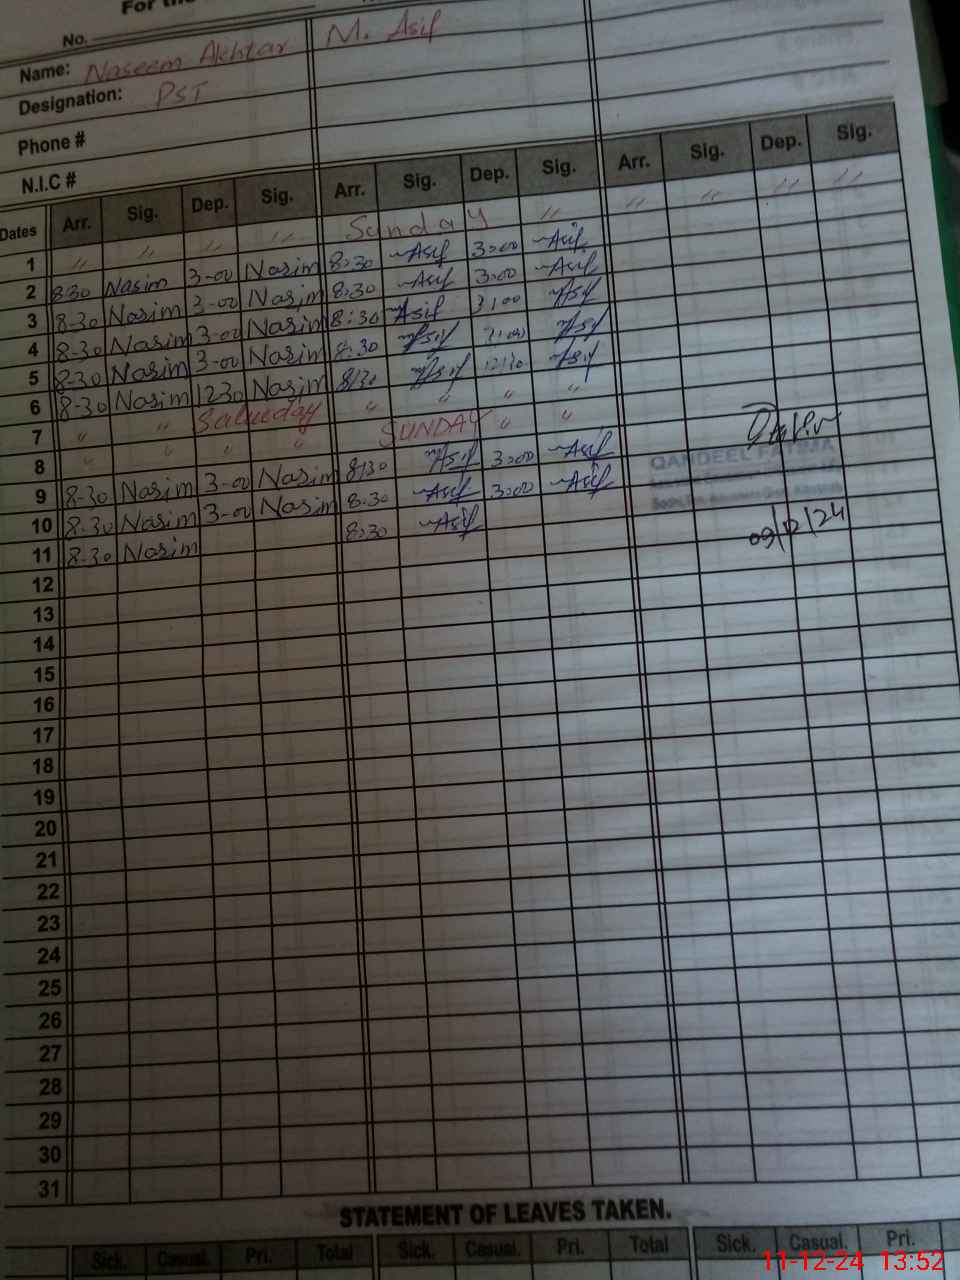 For the
No.
Name: Naseem Akhtar M. Asif
Designation: PST
Phone #
N.I.C #
Dates Arr. Sig. Dep. Sig. Arr. Sig. Dep. Sig. Arr. Sig. Dep. Sig.
1 〃 〃 〃 〃 Sunday 〃 〃 〃 〃 〃
2 8:30 Nasim 3-00 Nasim 8:30 Asif 3:00 Asif
3 8-30 Nasim 3-00 Nasim 8:30 Asif 3:00 Asif
4 8-30 Nasim 3-00 Nasim 8:30 Asif 3:00 Asif
5 8-30 Nasim 3-00 Nasim 8:30 Asif Asif
6 8-30 Nasim 1230 Nasim 8:30 Asif 12:30 Asif
7 〃 〃 Saturday 〃 〃 〃 〃
8 〃 〃 〃 〃 SUNDAY 〃 〃
9 8-30 Nasim 3-00 Nasim 8:30 Asif 3:00 Asif
QANDEEL FATIMA
10 8-30 Nasim 3-00 Nasim 8:30 Asif 3:00 Asif
11 8-30 Nasim 8:30 Asif
09/12/24
12
13
14
15
16
17
18
19
20
21
22
23
24
25
26
27
28
29
30
31
STATEMENT OF LEAVES TAKEN.
Sick. Casual. Pri. Total Sick. Casual. Pri. Total Sick. Casual. Pri.
11-12-24 13:52